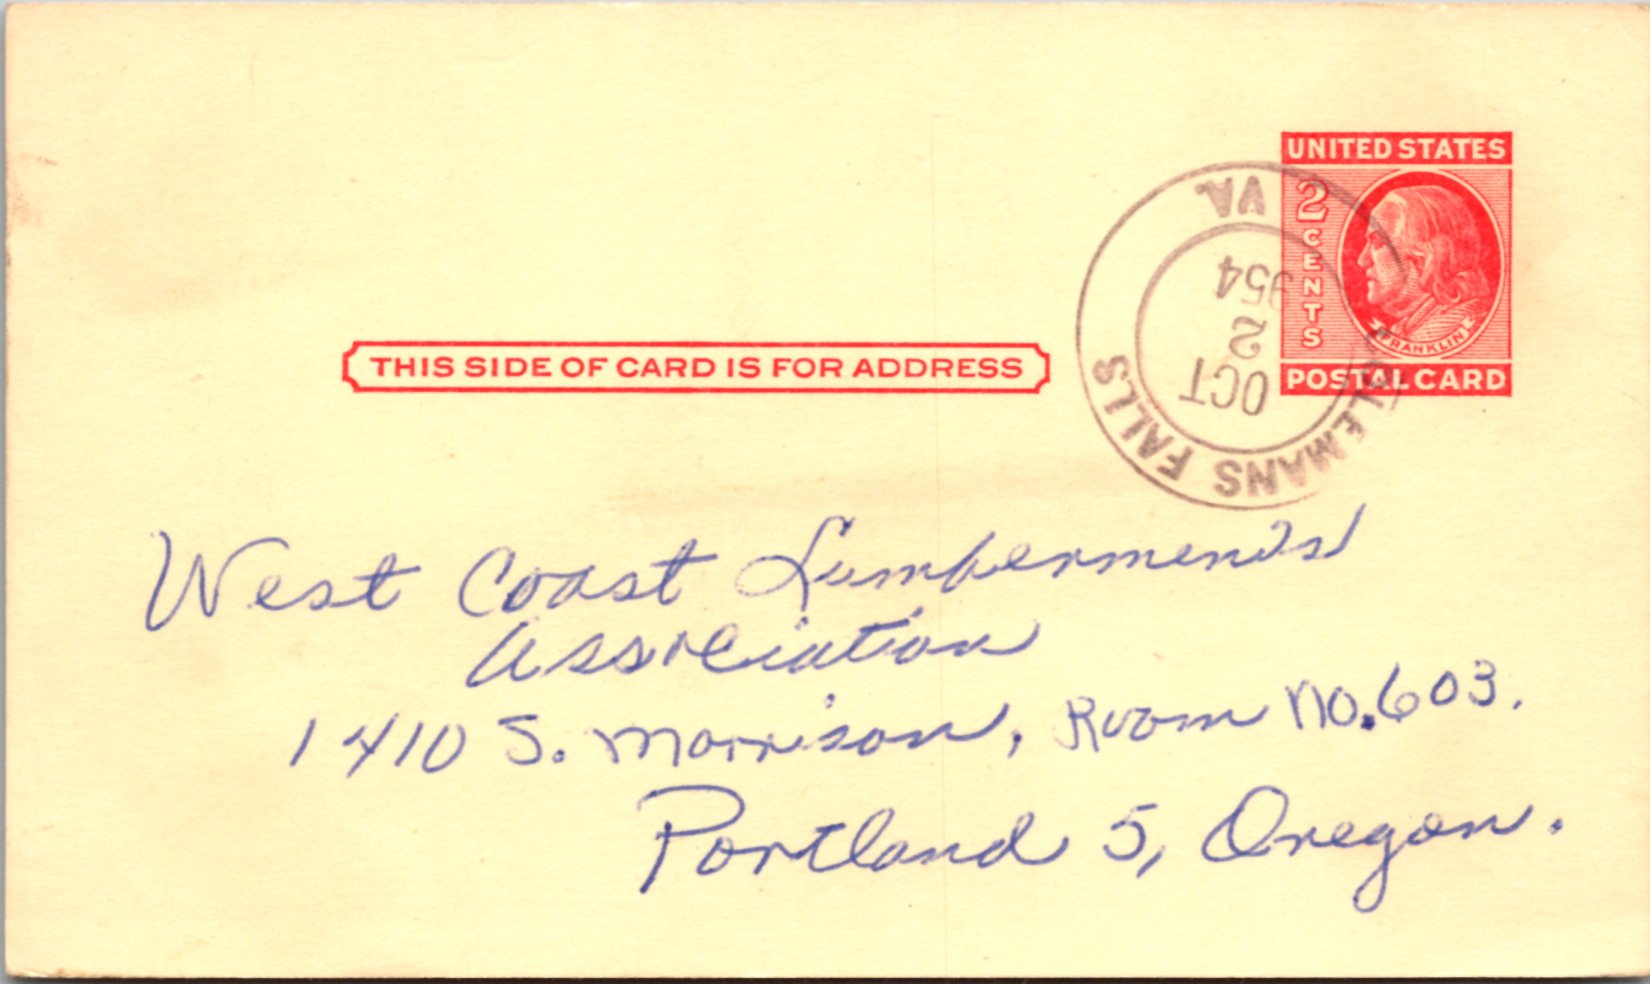 UNITED STATES
2 CENTS
FRANKLIN
POSTAL CARD
COLEMANS FALLS
VA.
OCT
2
1954
THIS SIDE OF CARD IS FOR ADDRESS
West Coast Lumbermen's
Association
1410 S. Morrison, Room No. 603.
Portland 5, Oregon.